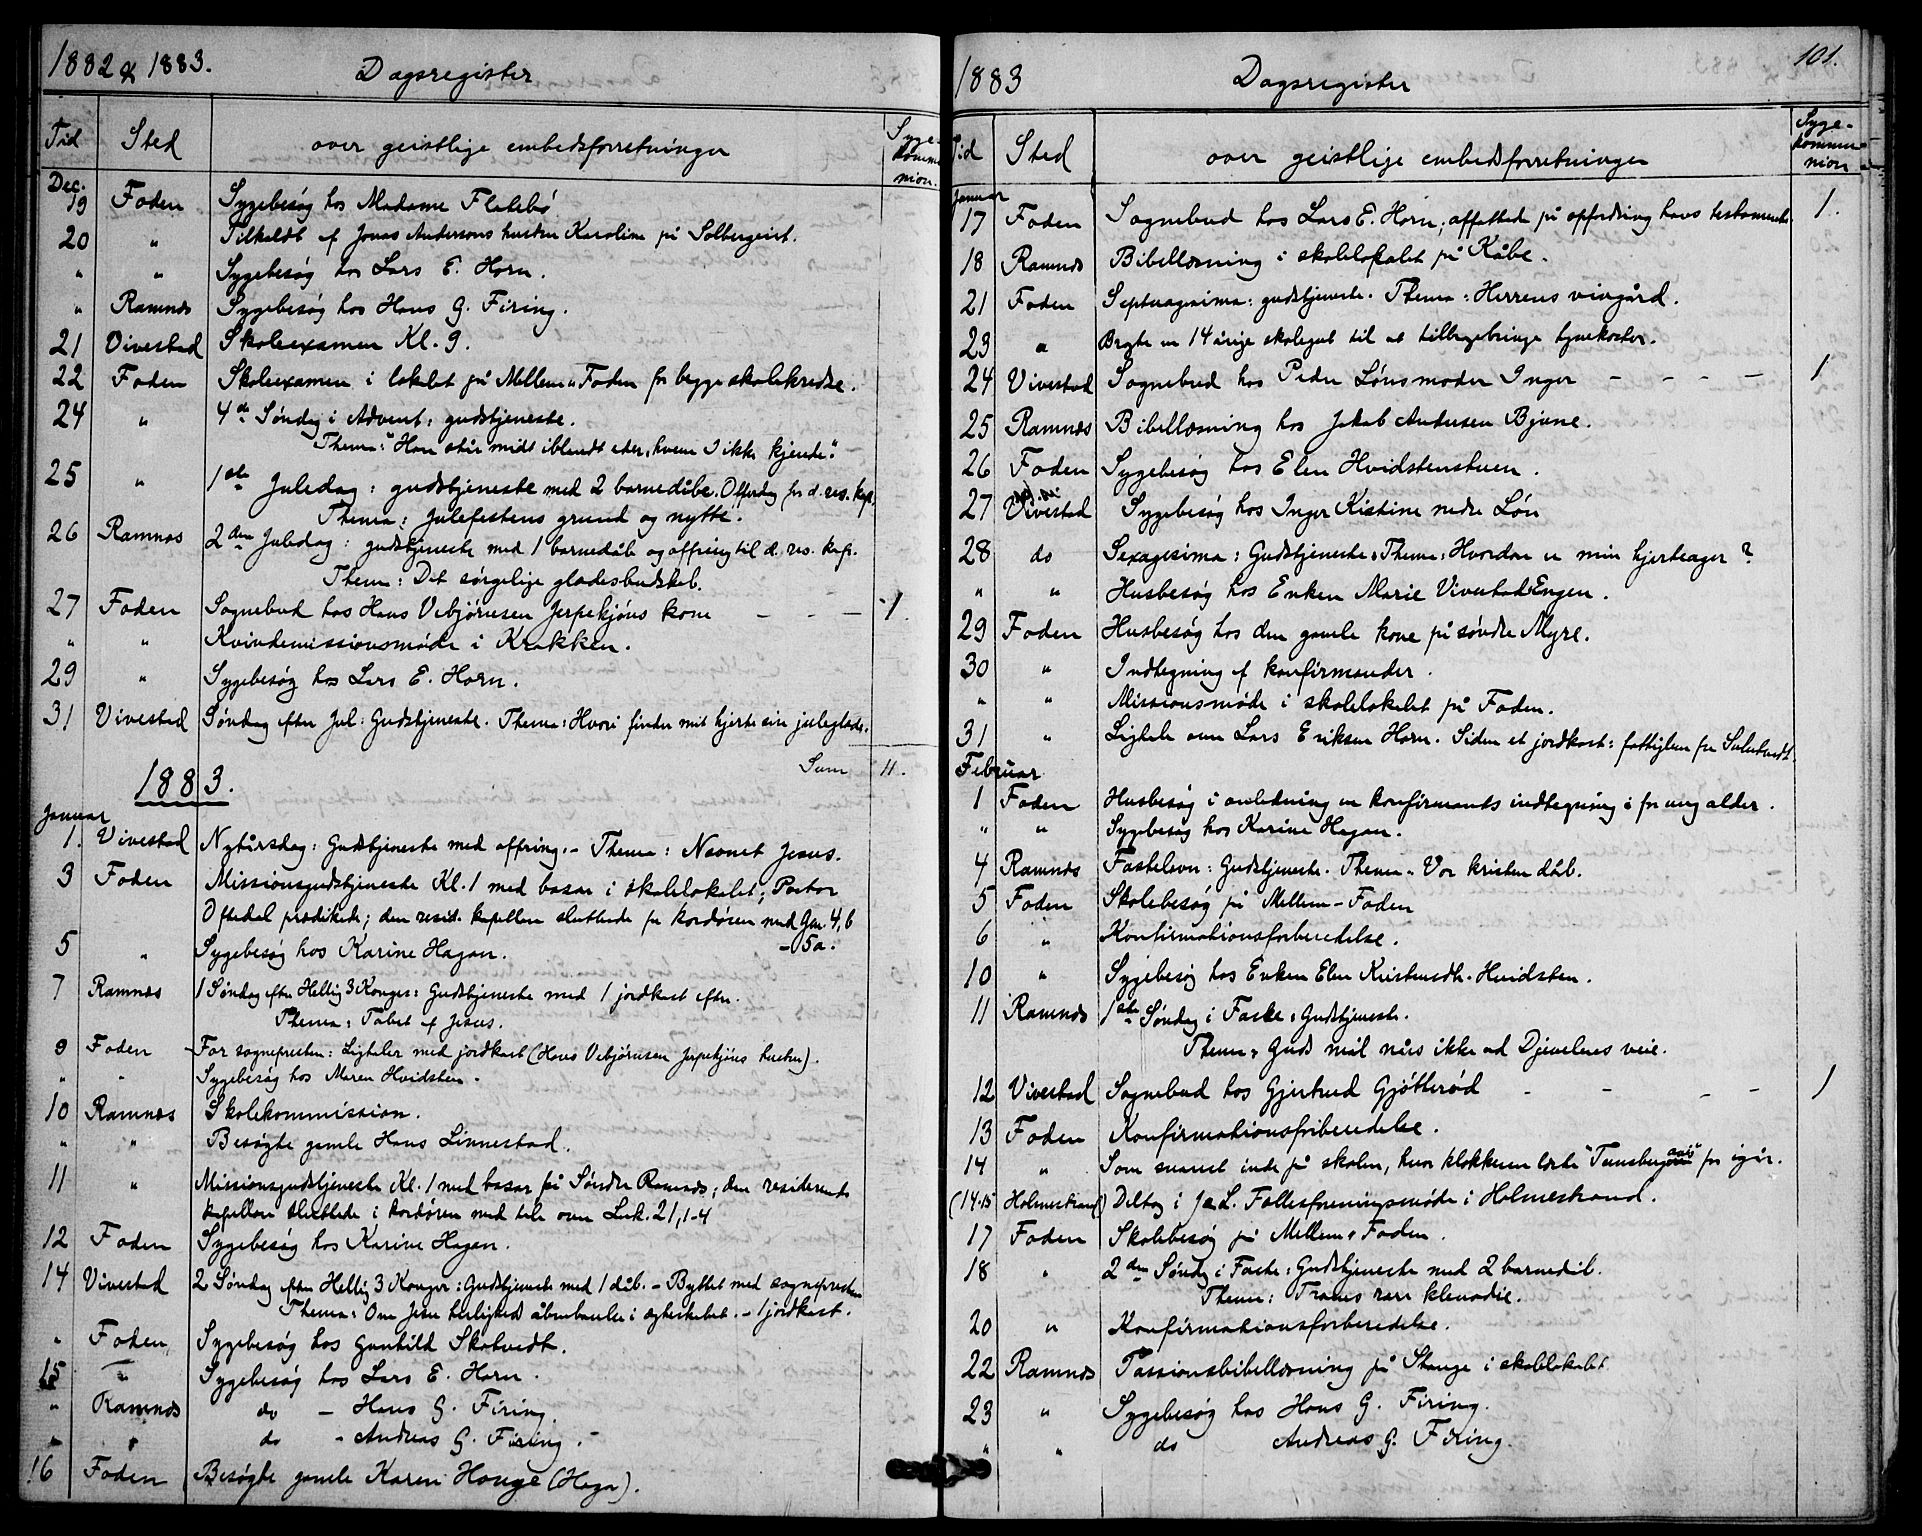 1882 & 1883. Dagsregister
Tid Sted over geistlige embedsforretninger Sygekommunion.
Dec.
19 Foden Sygebesøg hos Madame Flatebø
20 " Tilkaldt af Jonas Andersens hustru Karoline på Solbergeiet.
" " Sygebesøg hos Lars E. Horn.
" Ramnæs Sygebesøg hos Hans G. Firing.
21 Vivestad Skoleexamen Kl. 9.
22 Foden Skoleexamen i lokalet på Mellem-Foden for begge skolekredse.
24 " 4de Søndag i Advent: gudstjeneste.
Thema: "Han står midt iblandt eder, hvem I ikke kjende."
25 " 1ste Juledag: gudstjeneste med 2 barnedåbe. Offerdag for d. res. kap.
Thema: Julefestens grund og nytte.
26 Ramnæs 2den Juledag: gudstjeneste med 1 barnedåb og offring til d. res. kap.
Thema: Det sørgelige glædesbudskab.
27 Foden Sognebud hos Hans Vebjørnsen Jerpekjøns kone - - - 1.
" " Kvindemissionsmøde i Krakken.
29 " Sygebesøg hos Lars E. Horn.
31 Vivestad Søndag efter Jul: Gudstjeneste. Thema: Hvori finder mit hjerte sin juleglæde.
Sum 11.
1883.
Januar
1. Vivestad Nytårsdag: Gudstjeneste med offring. - Thema: Navnet Jesus.
3 Foden Missionsgudstjeneste Kl. 1 med basar i skolelokalet; Pastor
Oftedal prædikede; den resid. kapellan sluttede fra kordøren med Gen. 4, 6
5 " Sygebesøg hos Karine Hagan. - 5a.
7 Ramnæs 1 Søndag efter Hellig 3 Konger: Gudstjeneste med 1 jordkast efter.
Thema: Tabet af Jesus.
9 Foden For sognepresten: Ligtaler med jordkast (Hans Vebjørnsen Jerpekjøns hustru).
" " Sygebesøg hos Maren Hvidsten.
10 Ramnæs Skolekommission.
" " Besøgte gamle Hans Linnestad.
11 " Missionsgudstjeneste Kl. 1 med basar på Søndre Ramnæs; den residerende
kapellan sluttede i kordøren med tale over Luk. 21, 1-4
12 Foden Sygebesøg hos Karine Hagan.
14 Vivestad 2 Søndag efter Hellig 3 Konger: Gudstjeneste med 1 dåb. - Byttet med sognepresten
Thema: Om Jesu herligheds åbenbarelse i ægteskabet. - 1 jordkast.
" Foden Sygebesøg hos Gunhild Skotvedt.
15 " Sygebesøg hos Lars E. Horn.
" Ramnæs do - Hans G. Firing.
" " do - Andreas G. Firing.
16 Foden Besøgte gamle Karen Hauge (Haga).
1883 Dagsregister 101.
Tid Sted over geistlige embedsforretninger Sygekommunion
Januar
17 Foden Sognebud hos Lars E. Horn; affattede på opfordring hans testamente. 1.
18 Ramnæs Bibellæsning i skolelokalet på Kåbe.
21 Foden Septuagesima: gudstjeneste. Thema: Herrens vingård.
23 " Bragte en 14 årige skolegut til at tilbagebringe tyvekoster.
24 Vivestad Sognebud hos Peder Løns moder Inger - - - - 1
25 Ramnæs Bibellæsning hos Jakob Andersen Bjune.
26 Foden Sygebesøg hos Elen Hvidstenstuen.
27 Vivestad Sygebesøg hos Inger Kistine nedre Løn
28 do Sexagesima: Gudstjeneste: Thema: Hvordan er min hjerteager?
" " Husbesøg hos Enken Marie VivestadEngen.
29 Foden Husbesøg hos den gamle kone på søndre Myre.
30 " Indtegning af konfirmander.
" " Missionsmøde i skolelokalet på Foden.
31 " Ligtale over Lars Eriksen Horn. Siden et jordkast: fattiglem fra
Februar
1 Foden Husbesøg i anledning en konfirmants indtegning i for ung alder.
" " Sygebesøg hos Karine Hagan.
4 Ramnæs Fastelavn: Gudstjeneste. Thema: Vor kristen dåb.
5 Foden Skolebesøg på Mellem-Foden
6 " Konfirmationsforberedelse.
10 " Sygebesøg hos Enken Elen Kristensdtr. Hvidsten.
11 Ramnæs 1ste Søndag i Faste: Gudstjeneste.
Thema: Guds mål nåes ikke ad Djevelens veie.
12 Vivestad Sognebud hos Gjertrud Gjøtterød - - - - 1
13 Foden Konfirmationsforberedelse.
14 " Som snarest inde på skolen, hvor klokkeren læste "Tunsbergeren" for igår.
(14-15 Holmestrand) Deltog i J. L. Fællesforeningsmøde i Holmestrand.
17 Foden Skolebesøg på Mellem-Foden.
18 " 2den Søndag i Faste: Gudstjeneste med 2 barnedåb.
Thema: Troens rare klenodie.
20 " Konfirmationsforberedelse.
22 Ramnæs Passionsbibellæsning på Stange i skolelokalet
23 " Sygebesøg hos Hans G. Firing.
" " do Andreas G. Firing.